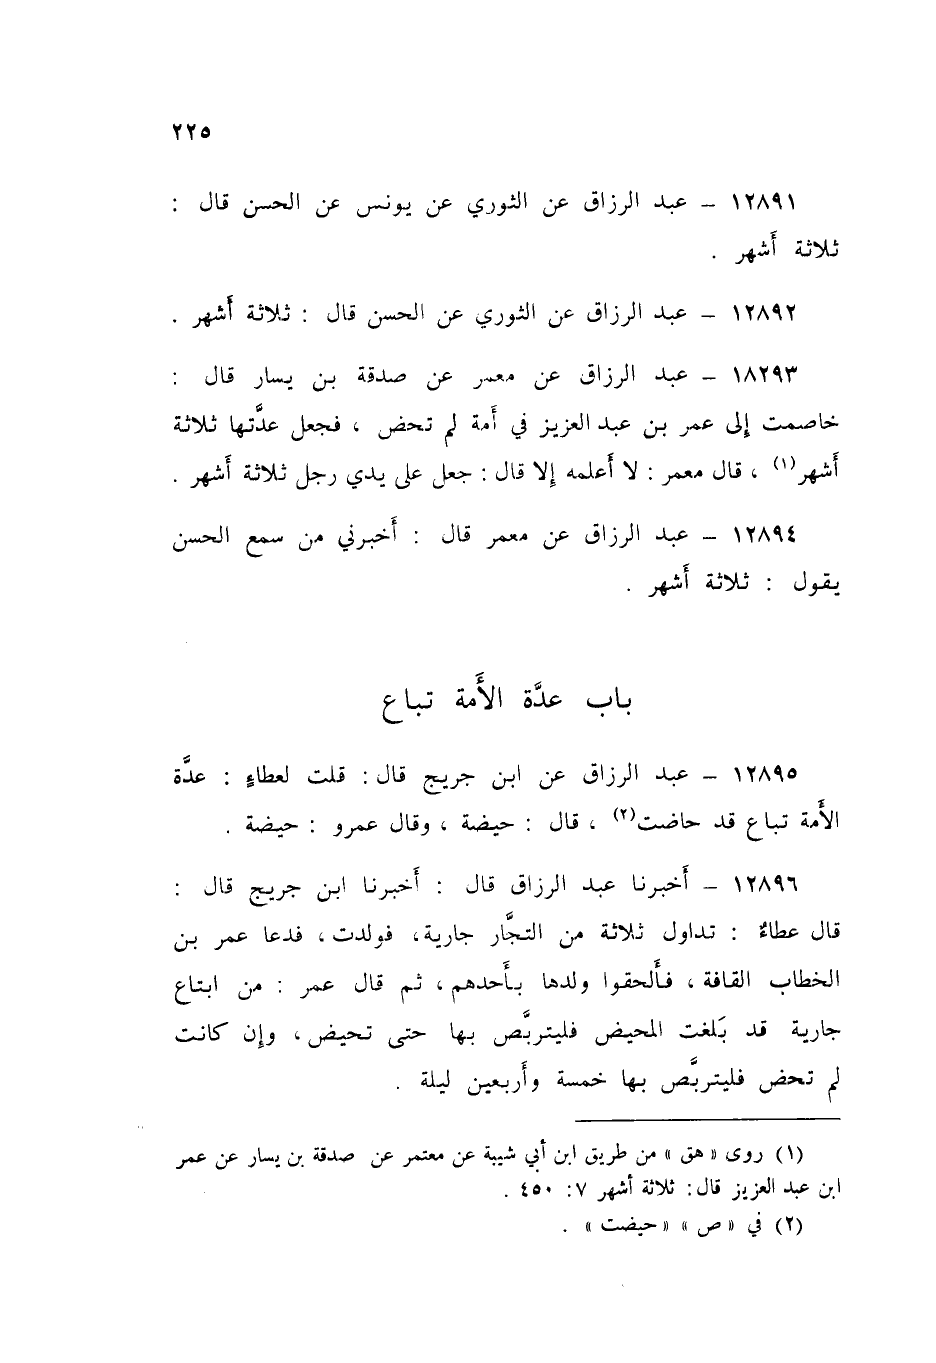 ٢٢٥
١٢٨٩١ – عبد الرزاق عن الثوري عن يونس عن الحسن قال :
ثلاثة أَشهر .
١٢٨٩٢ – عبد الرزاق عن الثوري عن الحسن قال : ثلاثة أَشهر .
١٨٢٩٣ – عبد الرزاق عن معمر عن صدقة بن يسار قال :
خاصمت إلى عمر بن عبد العزيز في أَمة لم تحض ، فجعل عدَّتها ثلاثة
أَشهر(١) ، قال معمر : لا أَعلمه إلا قال : جعل على يدي رجل ثلاثة أَشهر .
١٢٨٩٤ – عبد الرزاق عن معمر قال : أَخبرني من سمع الحسن
يقول : ثلاثة أَشهر .
باب عدَّة الأَمة تباع
١٢٨٩٥ – عبد الرزاق عن ابن جريج قال : قلت لعطاءٍ : عدَّة
الأَمة تباع قد حاضت(٢) ، قال : حيضة ، وقال عمرو : حيضة .
١٢٨٩٦ – أَخبرنا عبد الرزاق قال : أَخبرنا ابن جريج قال :
قال عطاءٌ : تداول ثلاثة من التجَّار جارية، فولدت، فدعا عمر بن
الخطاب القافة ، فأَلحقوا ولدها بأَحدهم ، ثم قال عمر : من ابتاع
جارية قد بَلغت المحيض فليتربَّص بها حتى تحيض ، وإن كانت
لم تحض فليتربَّص بها خمسة وأَربعين ليلة .
(١) روى « هق » من طريق ابن أبي شيبة عن معتمر عن صدقة بن يسار عن عمر
ابن عبد العزيز قال : ثلاثة أشهر ٧ : ٤٥٠ .
(٢) في « ص » « حيضت » .